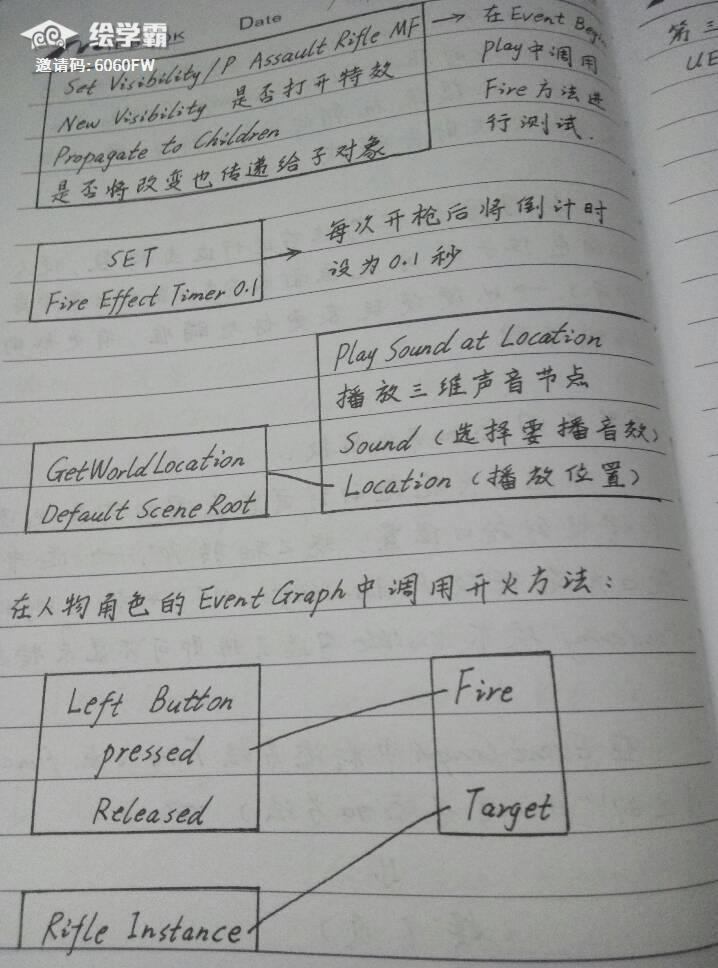 绘学霸
邀请码:6060FW
Date
Set Visibility/P Assault Rifle MF
New Visibility 是否打开特效
Propagate to Children
是否将改变也传递给子对象
在Event Begin
play中调用
Fire方法进
行测试.
SET
Fire Effect Timer 0.1
每次开枪后将倒计时
设为0.1秒
Play Sound at Location
播放三维声音节点
Sound (选择要播音效)
Location (播放位置)
GetWorldLocation
Default Scene Root
在人物角色的Event Graph中调用开火方法:
Left Button
pressed
Released
Fire
Target
Rifle Instance
第三
UE